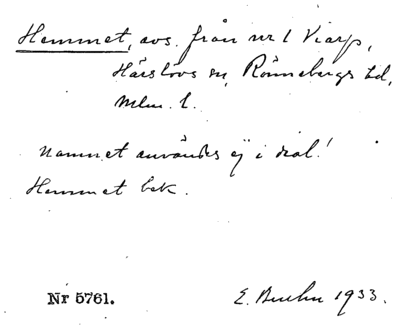 Hemmet, avs. från nr 1 Viarp,
Härslövs sn, Rönnebergs hd,
Mlm. l.
Namnet användes ej i dial!
Hemmet bek.
Nr 5761.
E. 1933.